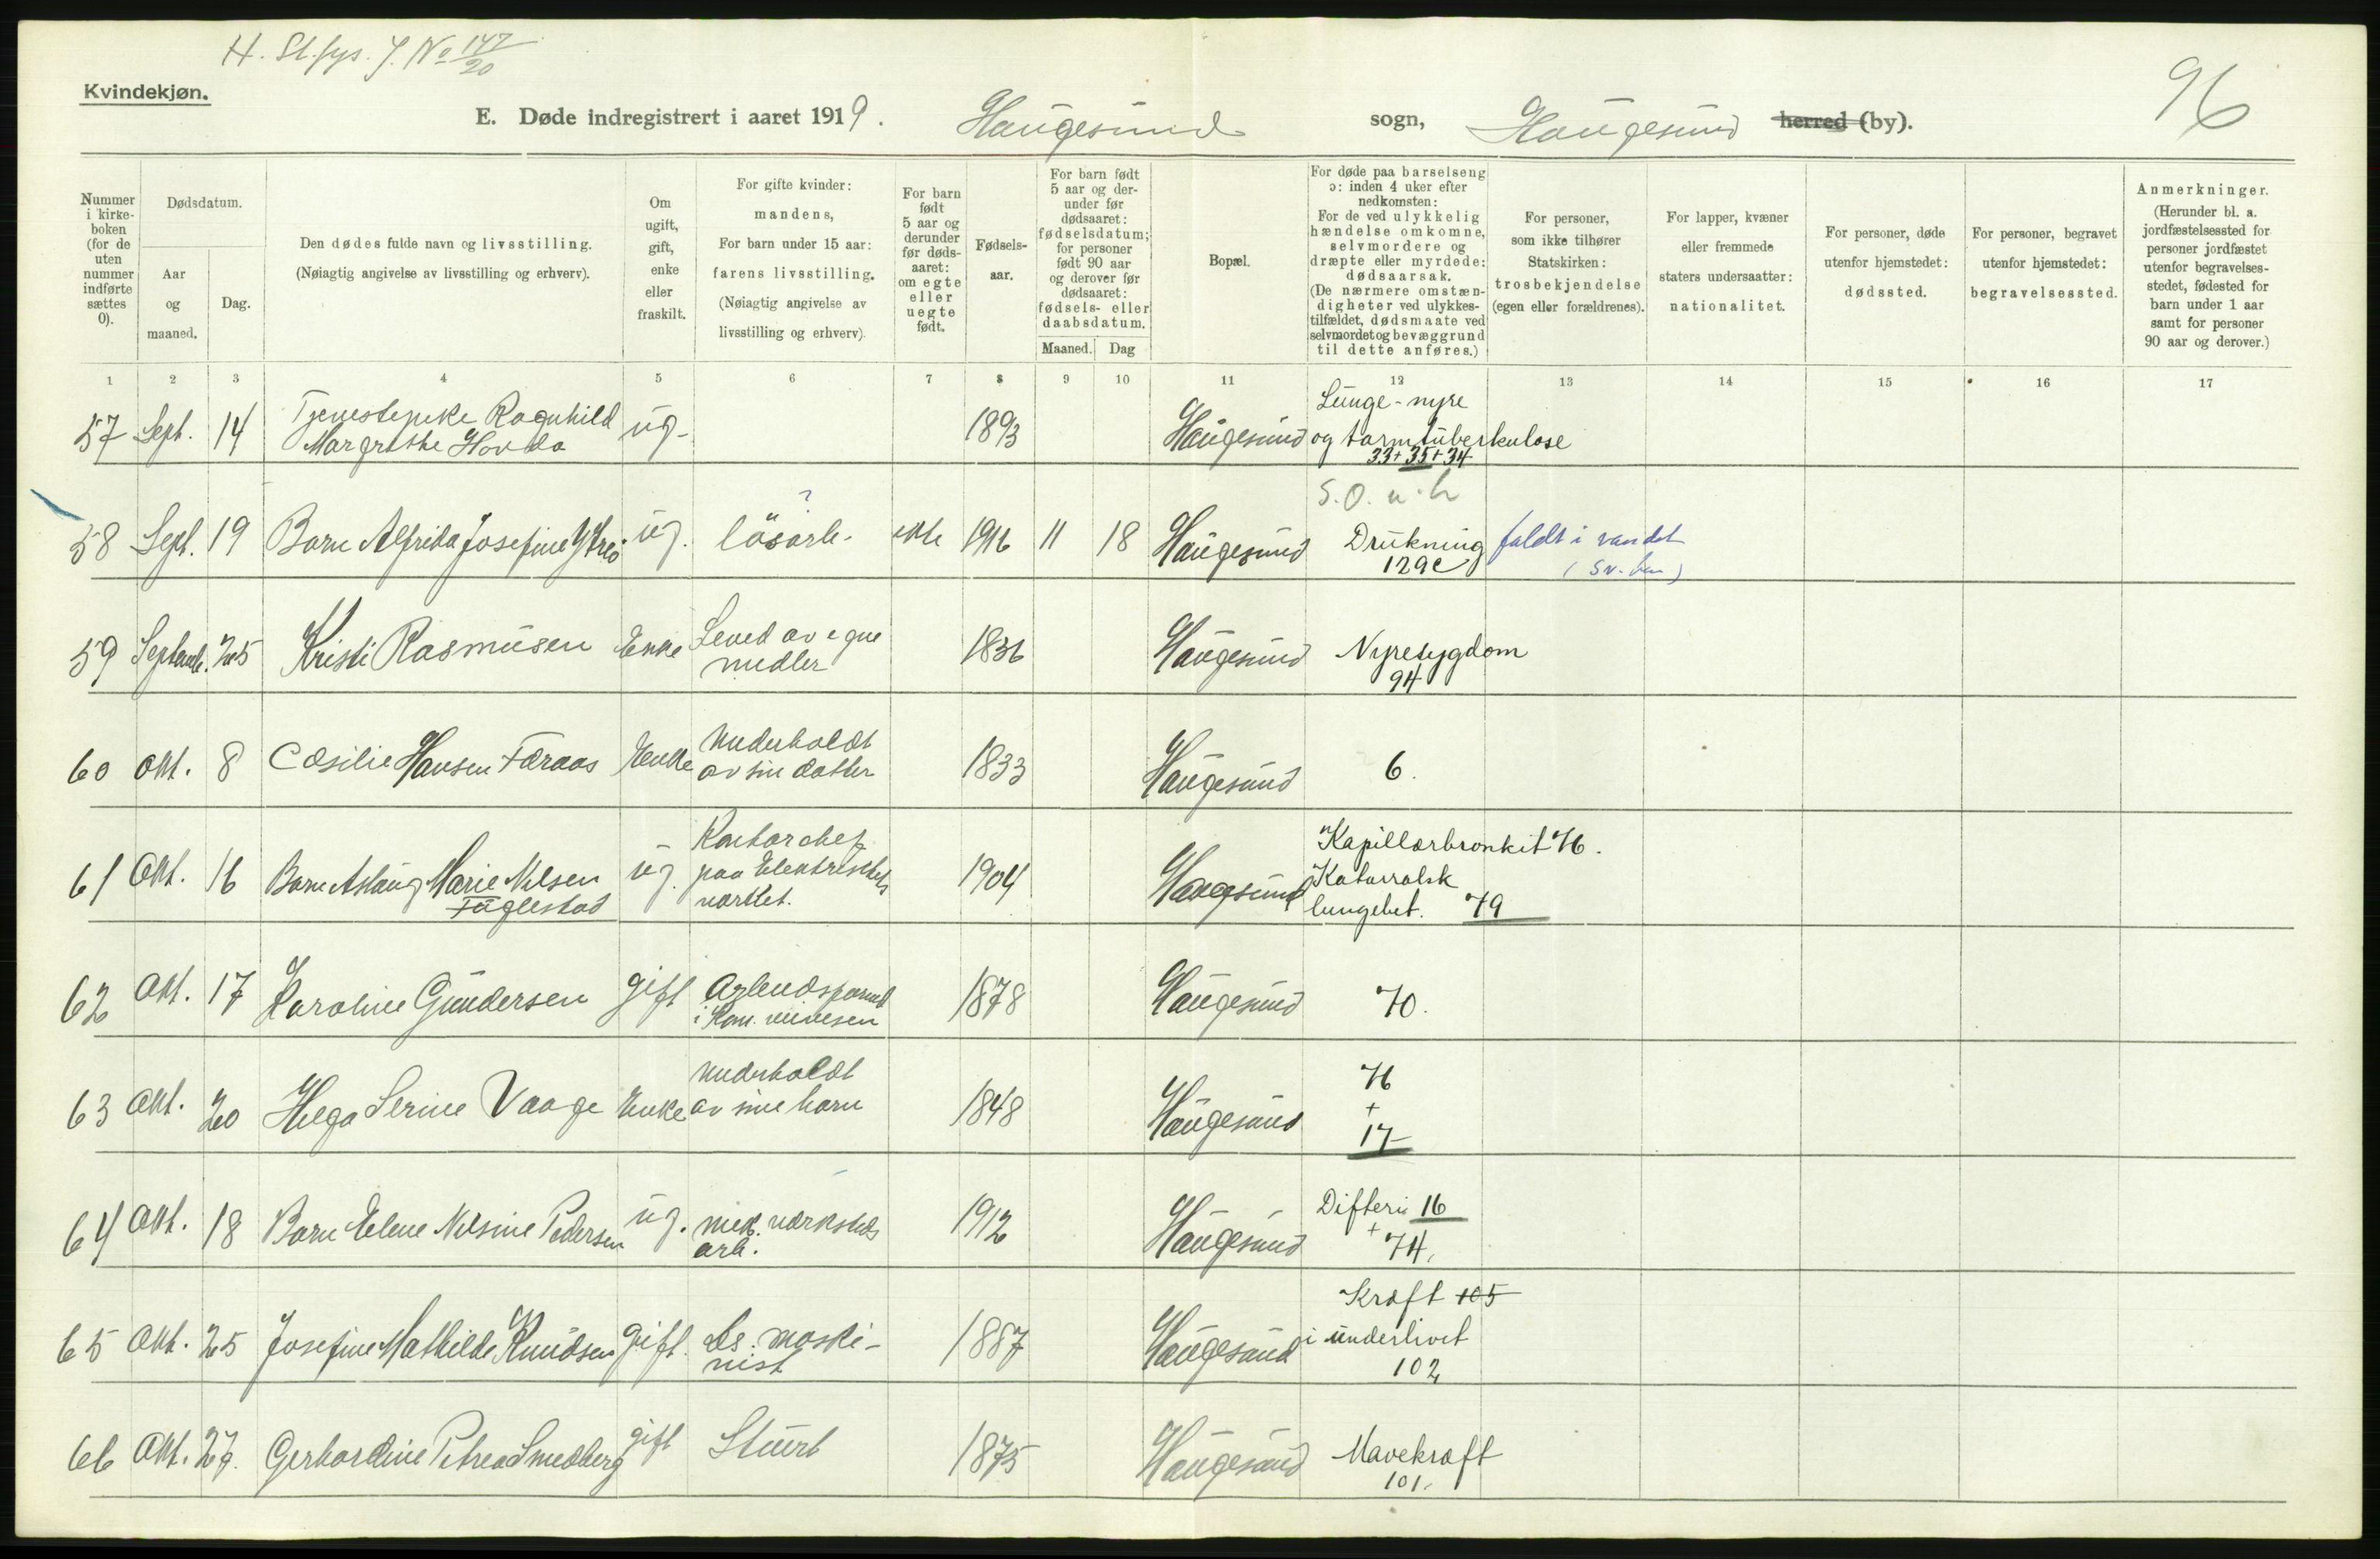 H. St.fys. J. No 147/20
96
Kvindekjøn.
E. Døde indregistrert i aaret 1919. Haugesund sogn, Haugesund herred (by).
Nummer i kirke-boken (for de uten nummer indførte sættes 0).
Dødsdatum.
Aar og maaned.
Dag.
Den dødes fulde navn og livsstilling.
(Nøiagtig angivelse av livsstilling og erhverv).
Om ugift, gift, enke eller fraskilt.
For gifte kvinder: mandens,
For barn under 15 aar: farens livsstilling.
(Nøiagtig angivelse av livsstilling og erhverv).
For barn født 5 aar og derunder før døds-aaret: om egte eller uegte født.
Fødsels-aar.
For barn født 5 aar og der-under før dødsaaret: fødselsdatum; for personer født 90 aar og derover før dødsaaret: fødsels- eller daabsdatum.
Maaned. Dag
Bopæl.
For døde paa barselseng ɔ: inden 4 uker efter nedkomsten:
For de ved ulykkelig hændelse omkomne, selvmordere og dræpte eller myrdede: dødsaarsak.
(De nærmere omstæn-digheter ved ulykkes-tilfældet, dødsmaate ved selvmordet og bevæggrund til dette anføres.)
For personer, som ikke tilhører Statskirken: trosbekjendelse (egen eller forældrenes).
For lapper, kvæner eller fremmede staters undersaatter: nationalitet.
For personer, døde utenfor hjemstedet: dødssted.
For personer, begravet utenfor hjemstedet: begravelsessted.
Anmerkninger.
(Herunder bl. a. jordfæstelsessted for personer jordfæstet utenfor begravelses-stedet, fødested for barn under 1 aar samt for personer 90 aar og derover.)
1 2 3 4 5 6 7 8 9 10 11 12 13 14 15 16 17
57 Sept. 14 Tjenestepike Ragnhild Margrethe Hovda ug. 1893 Haugesund Lunge-nyre og tarmtuberkulose 33+35+34
58 Sept. 19 Barn Alfrida Josefine Ytreø ug. ? løsarb. ekte 1916 11 18 Haugesund S.O. u.h Drukning 129c faldt i vandet (sv. hen)
59 Septemb. 25 Kristi Rasmusen Enke Leved av egne midler 1836 Haugesund Nyresygdom 94
60 Okt. 8 Cæsilie Hansen Færaas Enke Underholdt av sin datter 1833 Haugesund 6.
61 Okt. 16 Barn Aslaug Marie Nilsen Fuglestad ug. Kontorchef paa Elektrisitets verket. 1904 Haugesund Kapillærbronkit 76. Katarralsk lungebet. 79
62 Okt. 17 Karoline Gundersen gift Arbeidsformd i Kom. veivesen 1878 Haugesund 70.
63 Okt. 20 Helga Serine Vaage Enke Underholdt av sine barn 1848 Haugesund 76 + 17
64 Okt. 18 Barn Elene Nilsine Pedersen ug. mek. verksteds arb. 1912 Haugesund Difteri 16 + 74.
65 Okt. 25 Josefine Mathilde Knudsen gift. Ds. maskinist 1887 Haugesund Kræft 105 i underlivet 102
66 Okt. 27. Gerhardine Petrea Smedberg gift Stuert 1875 Haugesund Mavekræft 101.